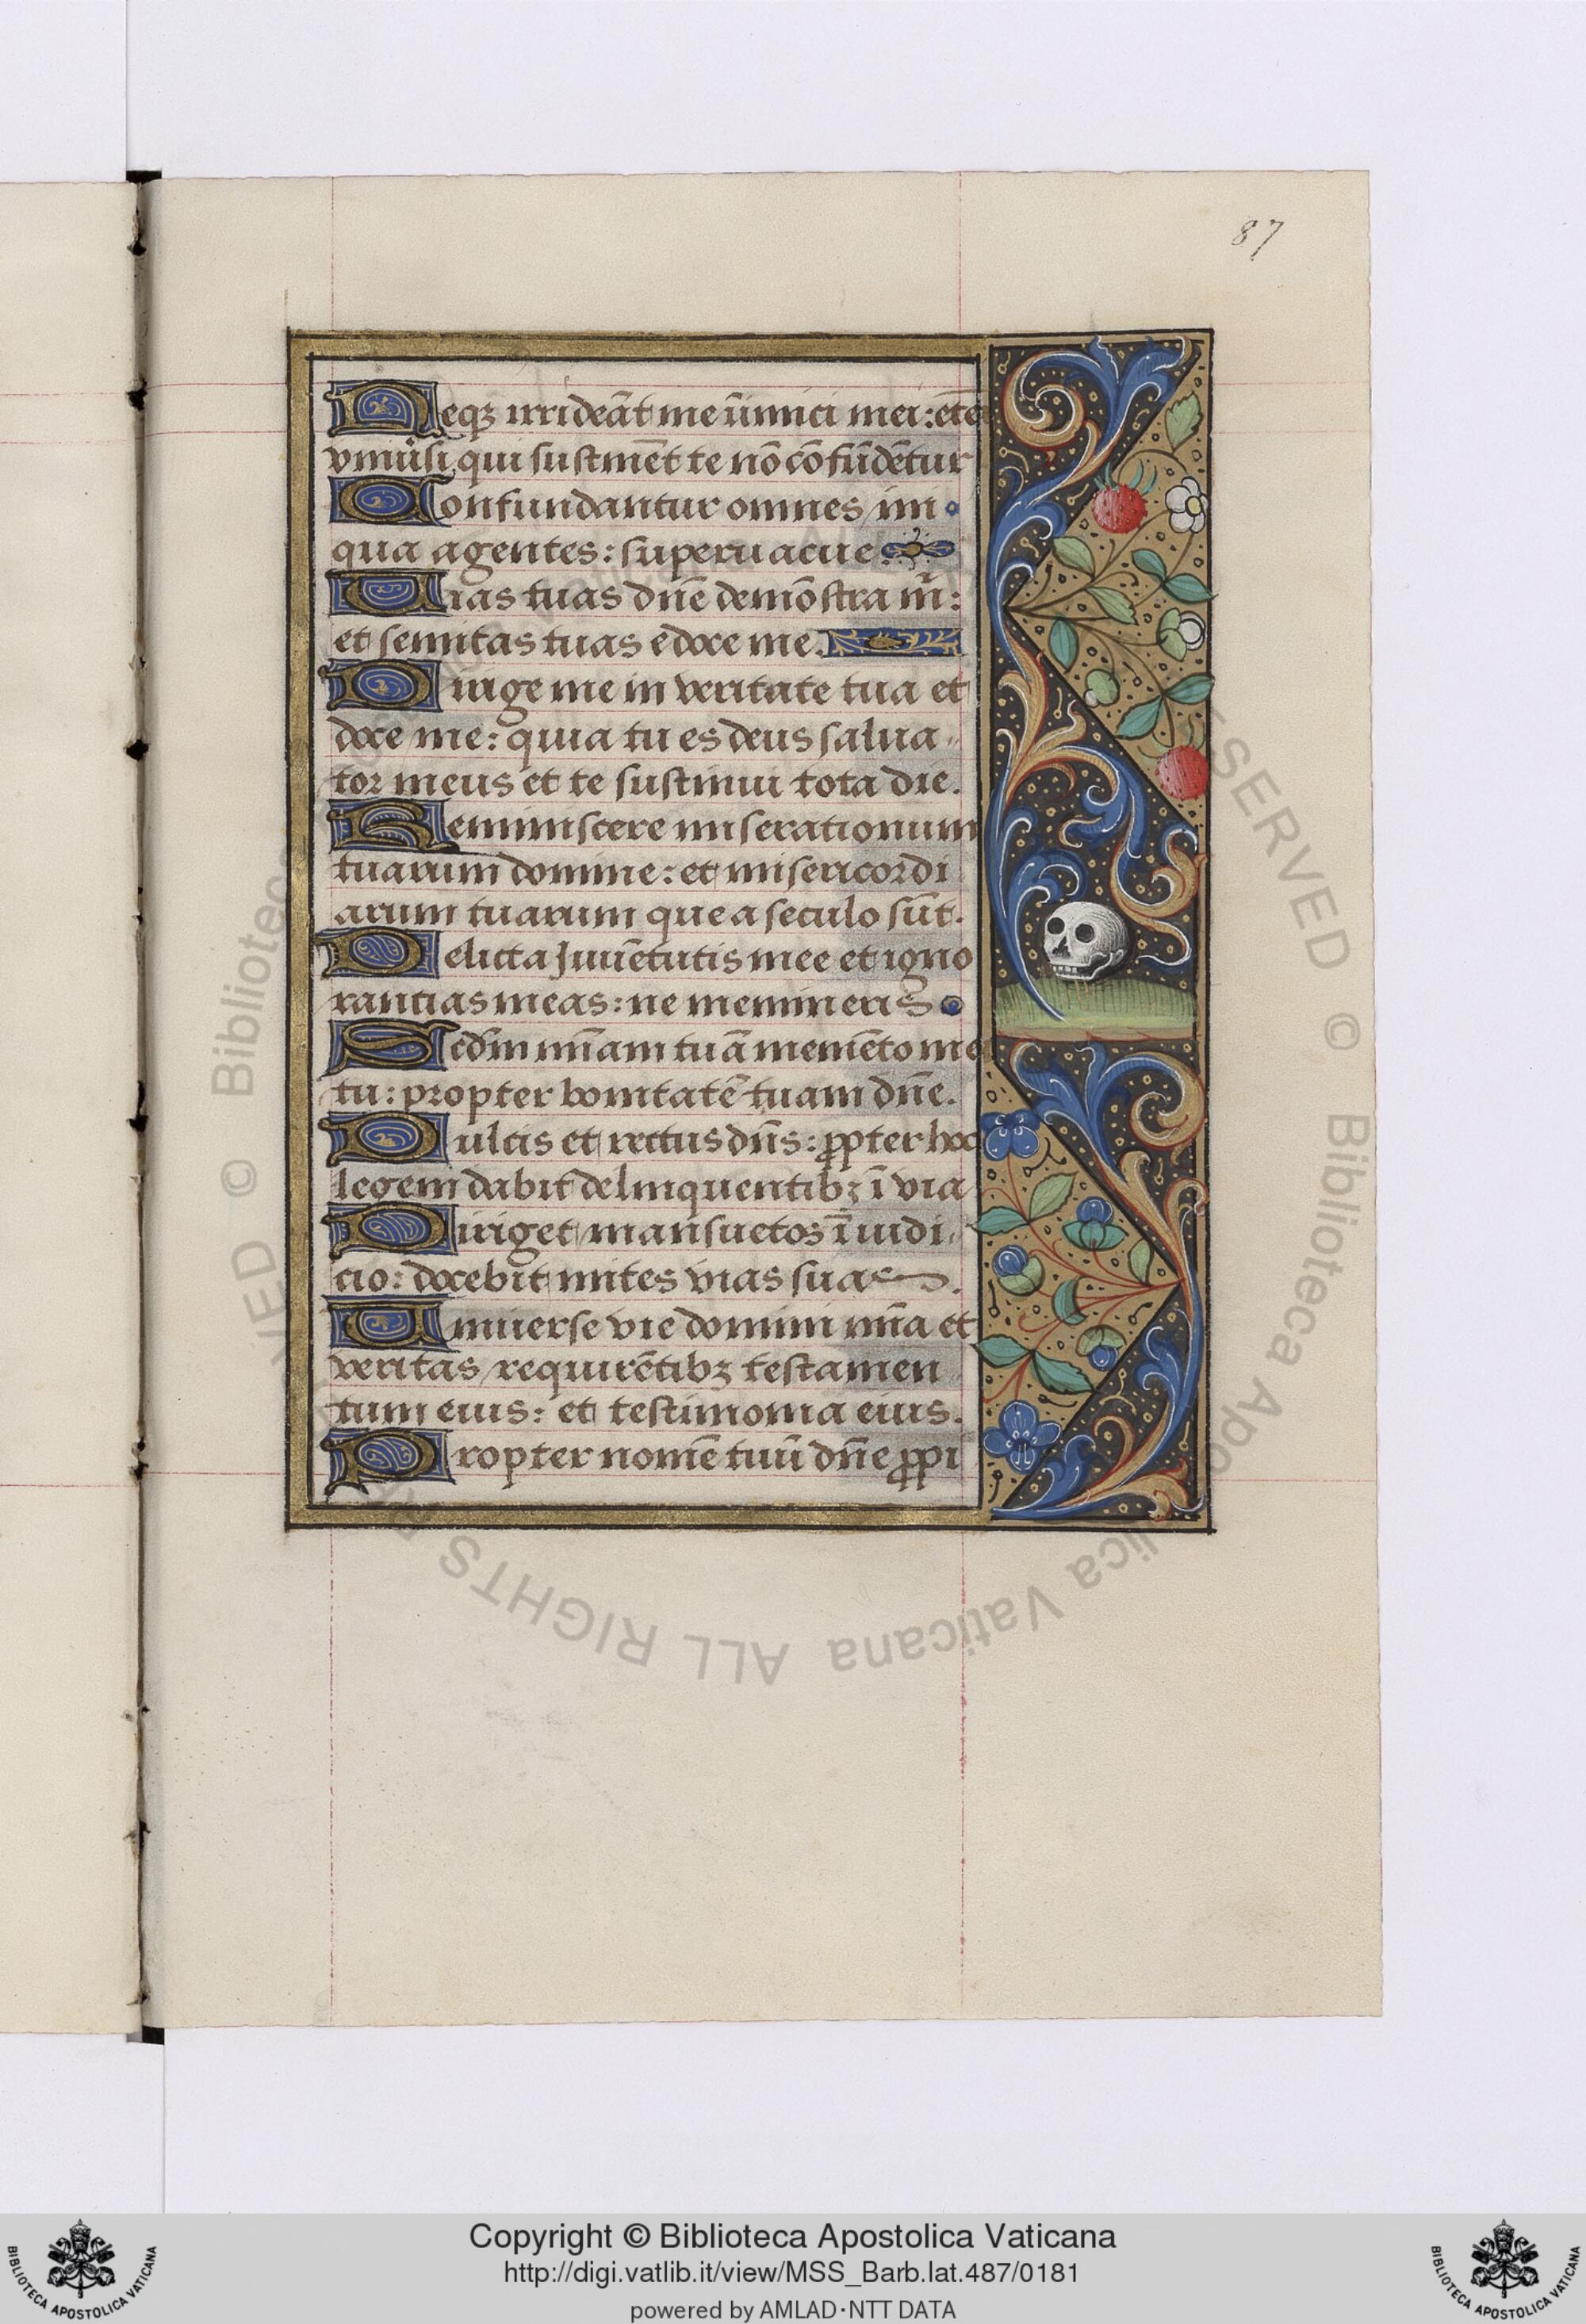 87
Neqꝫ irrideāt me inimici mei: etē
vniūsi qui sustinēt te nō cōfūdētur
Confundantur omnes ini
qua agentes: superuacue.
Uias tuas dn̄e demōstra m̄:
et semitas tuas edoce me.
Dirige me in veritate tua et
doce me: quia tu es deus salua
tor meus et te sustinui tota die.
Reminiscere miserationum
tuarum domine: et misericordi
arum tuarum que a seculo sūt.
Delicta Juuētutis mee et igno
rantias meas: ne memineris
Scd̄m mīam tuā memēto mei
tu: propter bonitatē tuam dn̄e.
Dulcis et rectus dn̄s: ꝓpter hoc
legem dabit delinquentibꝫ ī via
Diriget mansuetos ī iudi
cio: docebit mites vias suas.
Uniuerse vie domini mīa et
veritas requirētibꝫ testamen
tum eius: et testimonia eius.
Propter nomē tuū dn̄e ꝓpi
© Biblioteca Apostolica Vaticana ALL RIGHTS RESERVED
Copyright © Biblioteca Apostolica Vaticana
http://digi.vatlib.it/view/MSS_Barb.lat.487/0181
powered by AMLAD·NTT DATA
BIBLIOTECA APOSTOLICA VATICANA
BIBLIOTECA APOSTOLICA VATICANA